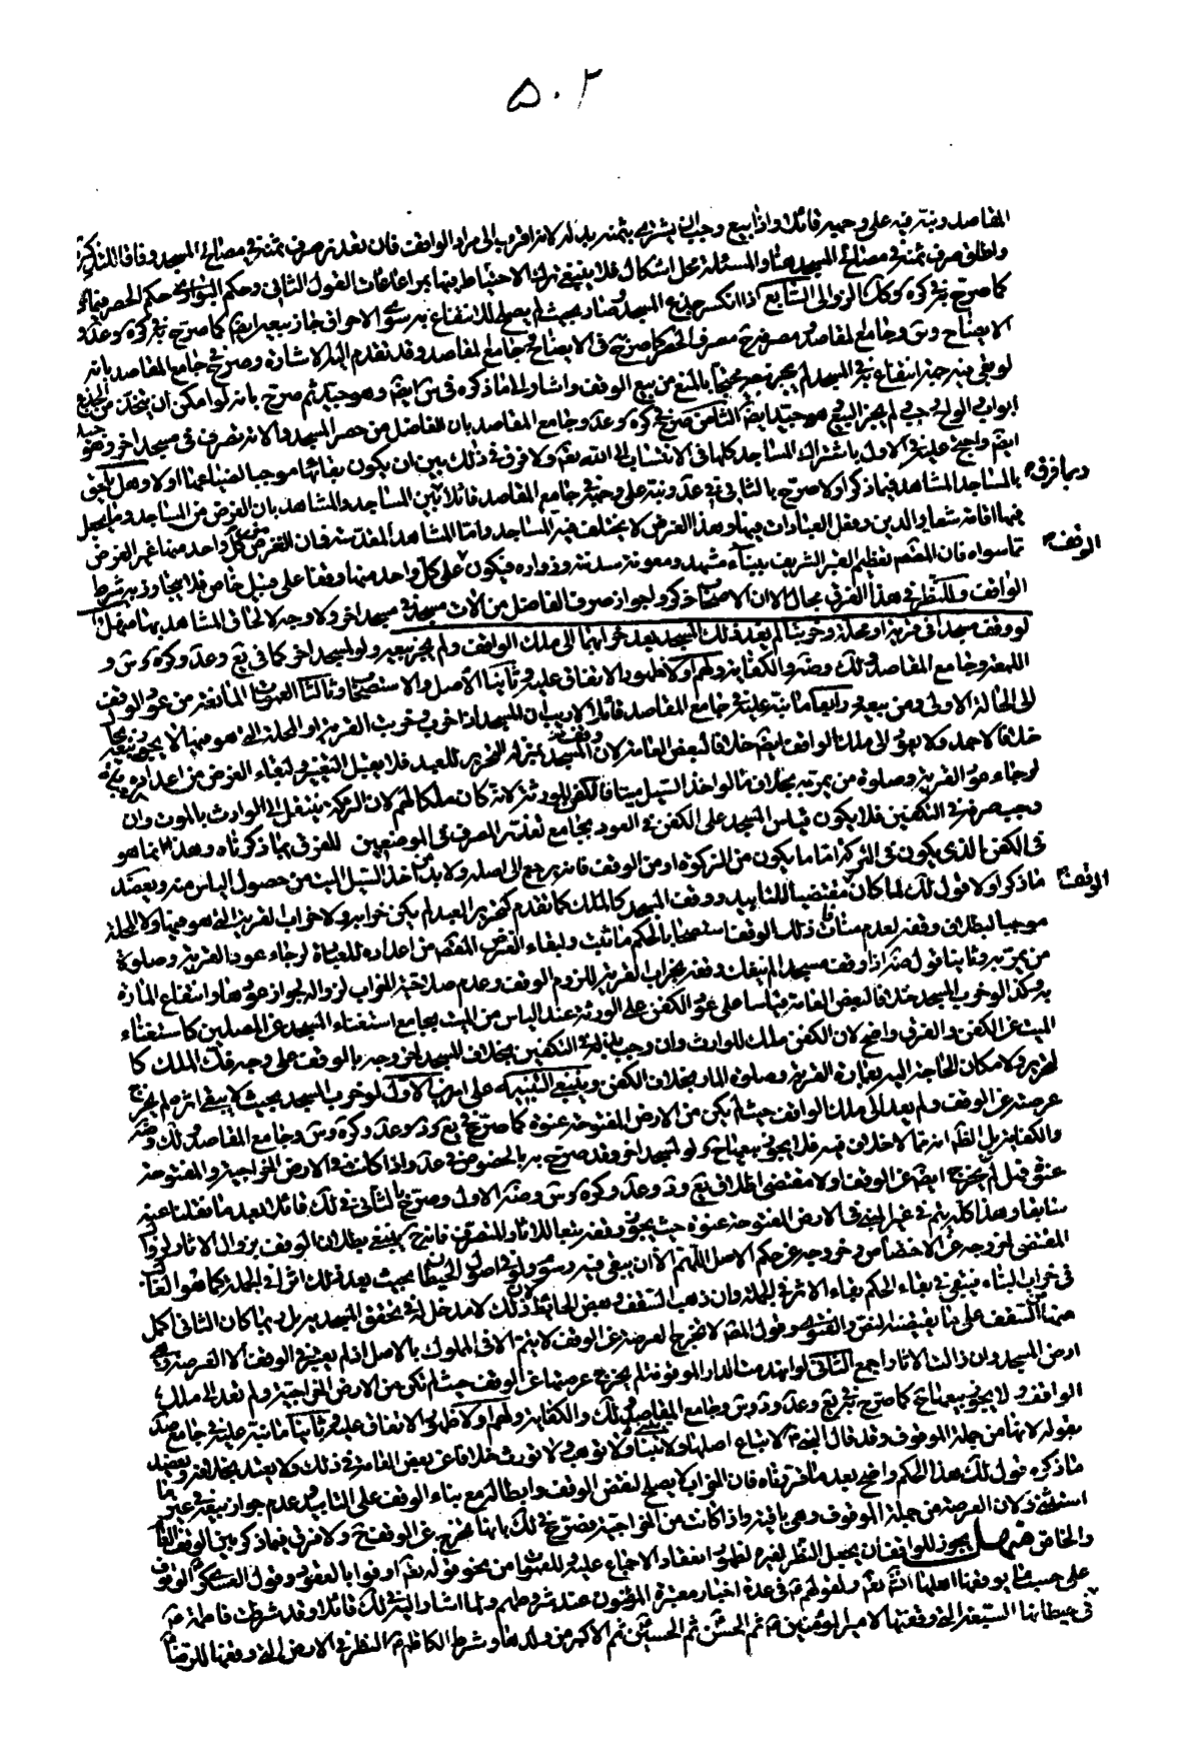 ٥٠٢
المقاصد ونبّه فيه على وجهه قائلا واذا بيع وجب ان يشترى بثمنه بدله لانه اقرب الى مراد الواقف فان تعذر صرف ثمنه في مصالح المسجد وفاقا للتذكرة
واطلق صرف ثمنه في مصالح المسجد هنا والمسئلة محل اشكال فلا ينبغي ترك الاحتياط فيها بمراعات القول الثاني وحكم البواري حكم الحصر فيما ذكر
كما صرّح في كره وكك الزوالى السابع اذا انكسر جذع المسجد فصار بحيث لم يصلح للانتفاع به سوى الاحراق جاز بيعه ايضا كما صرّح في كره وعد و
الايضاح وس وجامع المقاصد مصرحة مصرف الحصر كما صرّح في الايضاح وجامع المقاصد وقد تقدم اليه الاشارة وصرح في جامع المقاصد بانه
لو بقي فيه جهة انتفاع في المسجد لم يجز بيعه محتجا بالمنع من بيع الوقف واشار الى ما ذكره في س ايضا وهو جيد ثم صرح بانه لو امكن ان يتخذ من الجذع
ابواب لم يجز البيع وهو جيد ايضا الثامن صرح في كره وعد وجامع المقاصد بان الفاضل من حصر المسجد والاته تصرف في مسجد اخر وهو جيد
واحتج عليه في الاول باشتراك المساجد كلها في الانتساب الى الله تعالى ولا فرق في ذلك بين ان يكون بقائها موجبا لضياعها اولا وهل يلحق
بالمساجد المشاهد فيما ذكر اولا صرّح بالثاني في عد ونبّه على وجهه في جامع المقاصد قائلا بين المساجد والمشاهد بان الغرض من المساجد وما يجعل
وربما فرق
فيها اقامة شعار الدين وفعل العبادات فيها وهذا الغرض لا يختلف فيه المساجد واما المشاهد المقدسة فان الغرض من كل واحد منها غير الغرض
مما سواه فان المقصود تعظيم القبر الشريف ببناء مشهده ومعونة سدنته وزواره فيكون كل واحد منها وقفا على قبيل خاص فلا يتجاوز به شرط
الوقف
الواقف وللنظر في هذا الفرق مجال الا ان الاصحاب ذكروا جواز صرف الفاضل من الات مسجد في مسجد اخر ولا وجه لالحاق المشاهد بهما منهل
لو وقف مسجدا في قرية او محلة وخربتا لم يعد ذلك المسجد بعد خرابهما الى ملك الواقف ولم يجز بيعه ولو لمسجد اخر كما في يع وعد وكره وس و
اللمعة وجامع المقاصد ولك وضه والكفاية ولهم اولا ظهور الاتفاق عليه وثانيا الاصل والاستصحاب وثالثا العمومات المانعة من عود الوقف
الى الحالة الاولى ومن بيعه ورابعا ما نبّه عليه في جامع المقاصد قائلا لا ريب ان المسجد اذا خرب وخربت القرية او المحلة التي هو فيها لا يجوز بيعه
خلافا لاحمد ولا يعود الى ملك الواقف ايضا خلافا لبعض العامة لان وقف المسجد بمنزلة التحرير للعبد فلا يقبل التغيير ولبقاء الغرض من اعداده للعبادة
لرجاء عود القرية وصلوة من يمر به بخلاف ما لو اخذ السيل ميتا فالكفن للورثة لانه كان ملكا لهم لان التركة تنتقل الى الوارث بالموت وان
وجب صرفه في التكفين فلا يكون قياس المسجد على الكفن في العود بجامع تعذر المصرف في الموضعين للفرق بما ذكرناه وهذا انما هو
في الكفن الذي يكون في التركة اما ما يكون من الزكوة او من الوقف فانه يرجع الى اصله ولا بد في اخذ السيل الميت من حصول الياس منه ويعضد
ما ذكر اولا قول لك لما كان الوقف مقتضيا للتابيد ووقف المسجد كالملك كما تقدم كتحرير العبد لم يكن خرابه ولا خراب القرية التي هو فيها ولا المحلة
الوقف
موجبا لبطلان وقفه لعدم منافاة ذلك الوقف استصحابا لحكم ما ثبت ولبقاء الغرض المقصود من اعداده للعبادة لرجاء عود القرية وصلوة
من يمر به وثانيا قول ضه اذا وقف مسجدا لم ينفك وقفه بخراب القرية للزوم الوقف وعدم صلاحية الخراب لزواله لجواز عودها وانتفاع المارة
به وكذا لو خرب المسجد خلافا لبعض العامة قياسا على عود الكفن على الورثة عند الياس من الميت بجامع استغناء المسجد عن المصلين كاستغناء
الميت عن الكفن والفرق واضح لان الكفن ملك للوارث وان وجب بذله في التكفين بخلاف المسجد لخروجه بالوقف على وجه فك الملك كا
لتحرير ولامكان الحاجة اليه بعمارة القرية وصلوة المار بخلاف الكفن وينبغي التنبيه على امور الاول لو خرب المسجد بحيث لا يبقى اثره لم يخرج
عرصته عن الوقف ولم يعد الى ملك الواقف حيث لم يكن من الارض المفتوحة عنوة كما صرّح في يع وعد وكره وس وجامع المقاصد ولك وضه
والكفاية بل الظاهر انه مما لا خلاف فيه فلا يجوز بيعها ح ولو لمسجد اخر وقد صرح به بالخصوص في عد واذا كانت في الارض الخراجية والمفتوحة
عنوة فهل يخرج ايضا عن الوقف اولا مقتضى اطلاق يع ود وعد وكره وس وضه الاول وصرّح بالثاني في لك قائلا بعد ما نقلنا عنه
سابقا وهذا كله يتم في غير المبني في الارض المفتوحة عنوة حيث يجوز وقفه تبعا لاثار المتصرف فانه ح ينبغي بطلان الوقف بزوال الاثار لزوال
المقتضي للخروج عن الاختصاص وخروجه عن حكم الاصل اللهم الا ان يبقى فيه رسوم ولو في اصول الحيطان بحيث يعد ذلك اثرا في الجملة كما هو الغالب
في خراب البناء فيتجه في بقاء الحكم بقاء الاثر في الجملة وان ذهب السقف وبعض الحائط لان ذلك لا مدخل له في تحقق المسجدية بل ربما كان الثاني اكمل
منها السقف على ما يقتضيه النص والفتوى وقول المصنف لا تخرج العرصة عن الوقف لا يتم الا في المملوك بالاصل اذ لم يعتبر في الوقف الا العرصة وهي
ارض المسجد وان زالت الاثار اجمع الثاني لو انهدمت الدار الموقوفة لم يخرج عرصتها عن الوقف حيث لم تكن من الارض الخراجية ولم تعد الى ملك
الواقف ولا يجوز بيعها ح كما صرّح في يع وعد ود وس وجامع المقاصد ولك والكفاية ولهم اولا ظهور الاتفاق عليه وثانيا ما نبّه عليه في جامع ضد
بقوله لانها من جملة الموقوف وقد قال النبي لا تباع اصلها ولا تبتاع ولا توهب ولا تورث خلافا عن بعض العامة في ذلك ولا يعتد بخلافه ويعضد
ما ذكره قول لك هذا الحكم واضح بعد ما قررناه فان الخراب لا يصلح لنقض الوقف وابطاله مع بناء الوقف على التابيد وعدم جواز بيعه في غير ما
استثني ذلك لان العرصة من جملة الموقوف وهي باقية واذا كانت من الخراجية فصرح في لك بانها تخرج عن الوقف ح ولا فرق فيما ذكر بين الوقف العام
والخاص منهل يجوز للواقف ان يجعل النظر لغيره لظهور انعقاد الاجماع عليه وللعمومات من نحو قوله تعالى اوفوا بالعقود وقول العسكري الوقوف
على حسب ما يوقفها اهلها انشاء الله تعالى ولقولهم في عدة اخبار معتبرة المؤمنون عند شروطهم ولما اشار اليه في لك قائلا وقد شرطت فاطمة
في حيطانها السبعة التي وقفتها لامير المؤمنين ثم الحسن ثم الحسين ثم الاكبر من ولدها وشرط الكاظم النظر في الارض التي وقفها للرضا